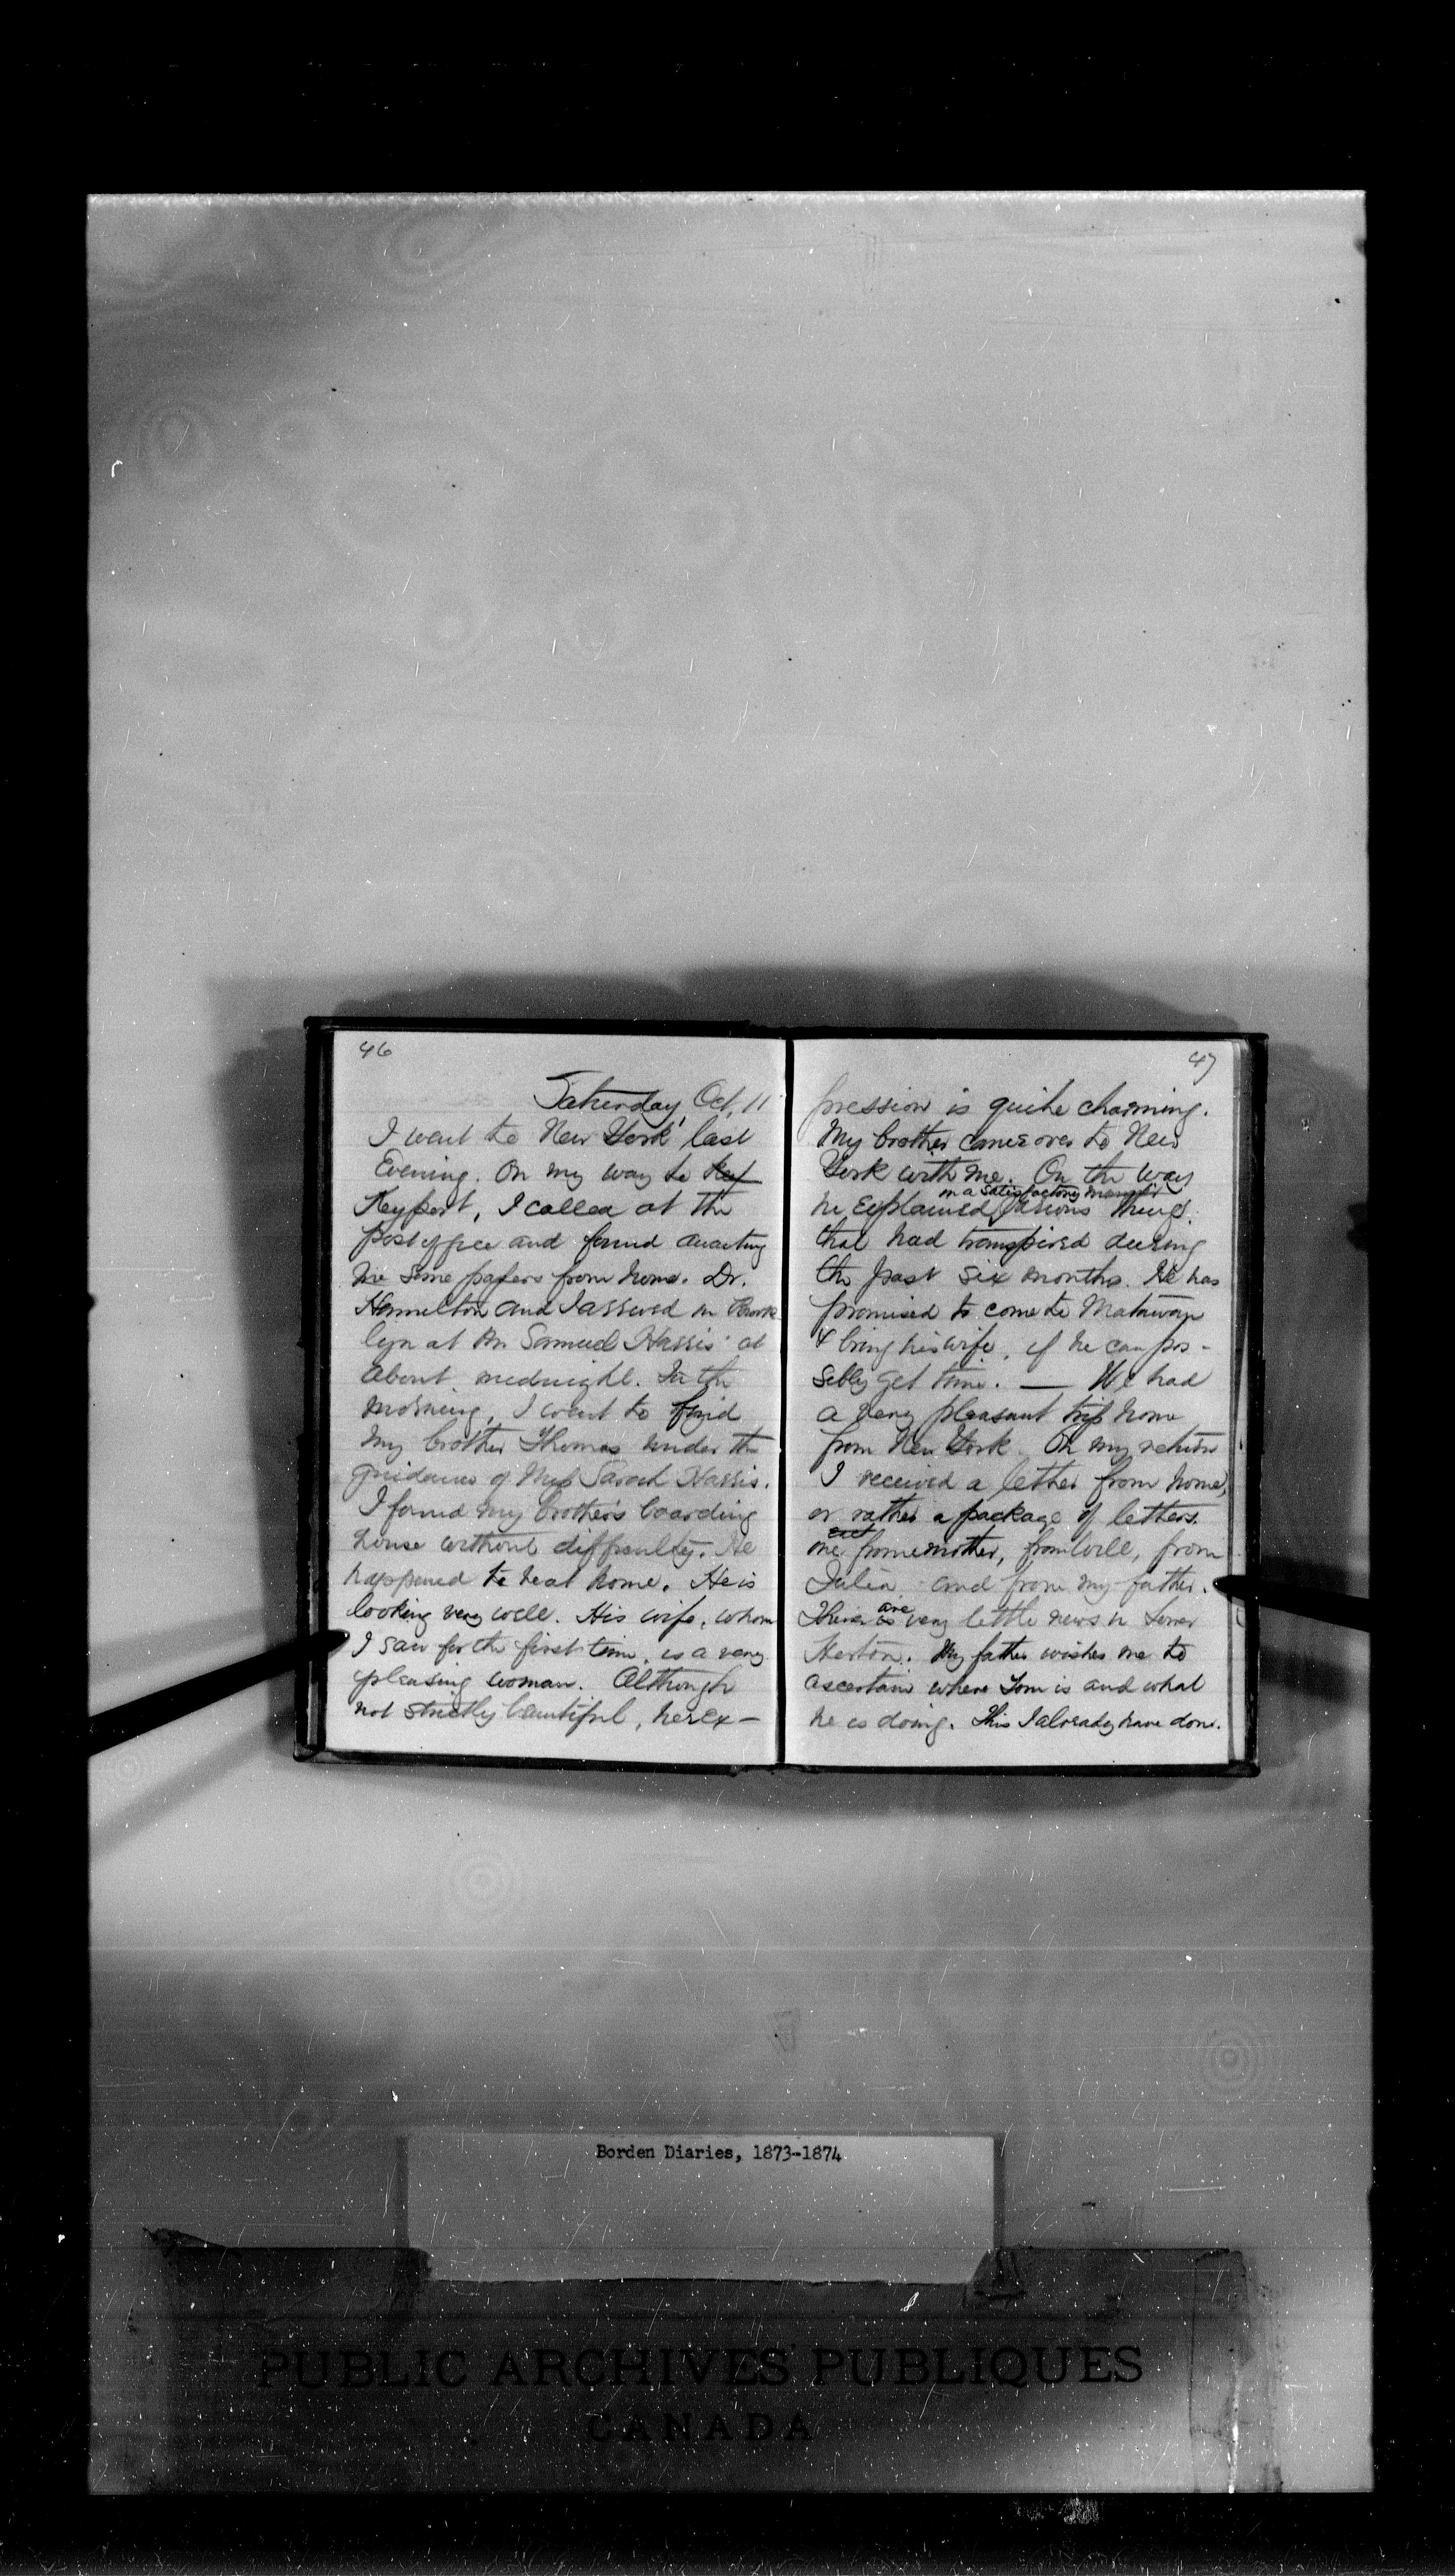 46
Saturday, Oct. 11
I went to New York last
Evening. On my way to Key
Keyport, I called at the
post office and found awaiting
me some papers from home. Dr.
Hamilton and I arrived in Brook
lyn at Mr Samuel Harris' at
about midnight. In the
morning, I went to find
my brother Thomas under the
guidance of Miss Sarah Harris.
I found my brother's boarding
house without difficulty. He
happened to be at home. He is
looking very well. His wife, whom
I saw for the first time, is a very
pleasing woman. Although
not strictly beautiful, her ex-
47
pression is quite charming.
My brother came over to New
York with me. On the way
in a satisfactory manner
he explained various things
that had transpired during
the past six months. He has
promised to come to Matawan
& bring his wife, if he can pos-
sibly get time. — We had
a very pleasant trip home
from New York. On my return
I received a letter from home,
or rather a package of letters.
one from mother, from Will, from
Julia and from my father.
are
There is very little news in Lower
Horton. My father wishes me to
ascertain where Tom is and what
he is doing. This I already have done.
Borden Diaries, 1873-1874
PUBLIC ARCHIVES PUBLIQUES
CANADA